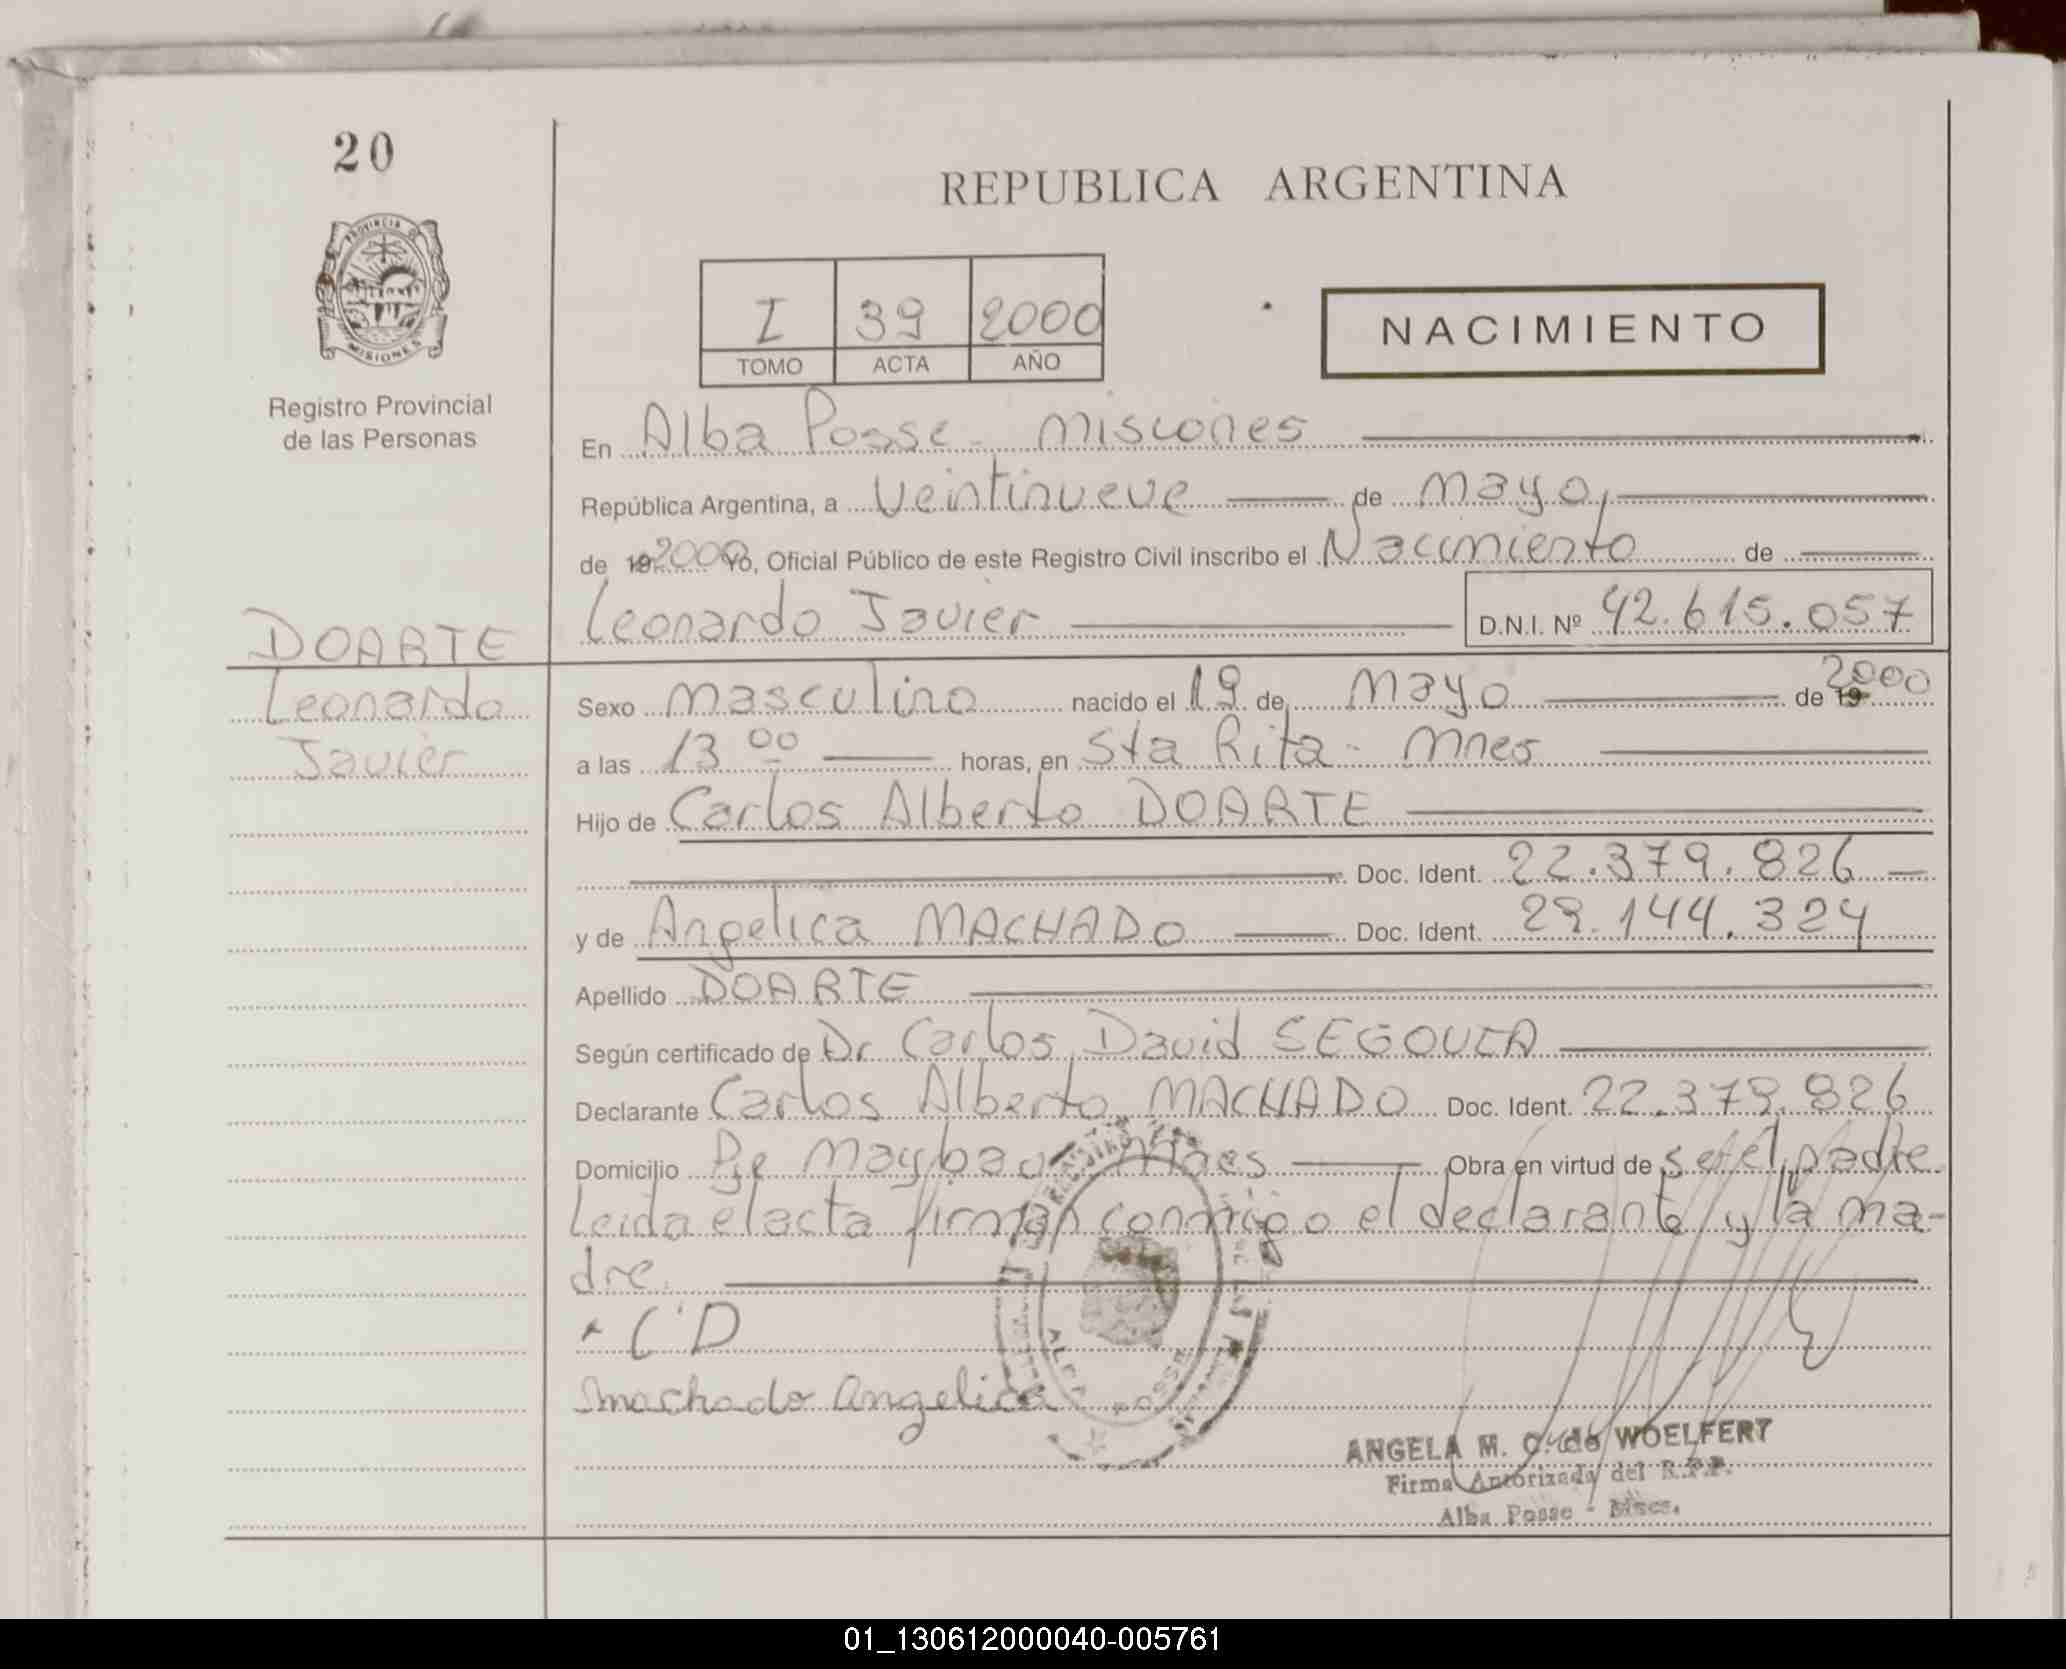 20
REPUBLICA ARGENTINA
PROVINCIA D
MISIONES
Registro Provincial
de las Personas
I 39 2000
TOMO ACTA AÑO
NACIMIENTO
En Alba Posse - Misiones
República Argentina, a Veintinueve de Mayo,
de 19 2000 Yo, Oficial Público de este Registro Civil inscribo el Nacimiento de
DOARTE Leonardo Javier D.N.I. Nº 42.615.057
Leonardo
Javier
Sexo Masculino nacido el 19 de Mayo de 19 2000
a las 13 00 horas, en Sta Rita - Mnes
Hijo de Carlos Alberto DOARTE
Doc. Ident. 22.379.826
y de Angelica MACHADO Doc. Ident. 29.144.324
Apellido DOARTE
Según certificado de Dr Carlos David SEGOVIA
Declarante Carlos Alberto MACHADO Doc. Ident. 22.379.826
Domicilio Pje Maybao Mnes Obra en virtud de ser el padre
Leida el acta firman conmigo el declarante y la ma-
dre.
C D
Machado Angelica
ALBA POSSE
ANGELA M. C. de WOELFERT
Firma Autorizada del R.P.P.
Alba Posse - Mnes.
01_130612000040-005761